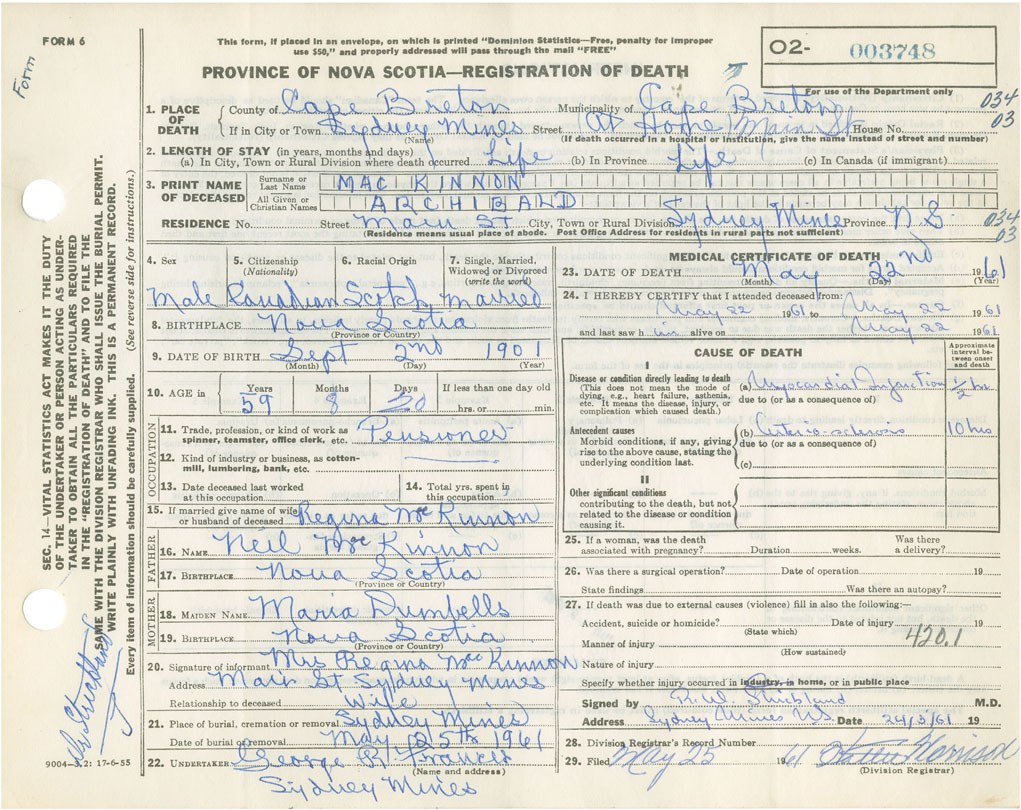 FORM 6
Form
This form, if placed in an envelope, on which is printed "Dominion Statistics—Free, penalty for improper
use $50," and properly addressed will pass through the mail "FREE"
PROVINCE OF NOVA SCOTIA—REGISTRATION OF DEATH
02- 003748
For use of the Department only
SEC. 14—VITAL STATISTICS ACT MAKES IT THE DUTY
OF THE UNDERTAKER OR PERSON ACTING AS UNDER-
TAKER TO OBTAIN ALL THE PARTICULARS REQUIRED
IN THE "REGISTRATION OF DEATH" AND TO FILE THE
SAME WITH THE DIVISION REGISTRAR WHO SHALL ISSUE THE BURIAL PERMIT.
WRITE PLAINLY WITH UNFADING INK. THIS IS A PERMANENT RECORD.
Every item of information should be carefully supplied. (See reverse side for instructions.)
1. PLACE OF DEATH County of Cape Breton Municipality of Cape Breton 034
If in City or Town Sydney Mines Street (At Home) Main St House No. 03
(Name) (If death occurred in a hospital or institution, give the name instead of street and number)
2. LENGTH OF STAY (in years, months and days)
(a) In City, Town or Rural Division where death occurred Life (b) In Province Life (c) In Canada (if immigrant)
3. PRINT NAME OF DECEASED Surname or Last Name MAC KINNON
All Given or Christian Names ARCHIBALD
RESIDENCE No. Street Main St City, Town or Rural Division Sydney Mines Province N.S. 034
03
(Residence means usual place of abode. Post Office Address for residents in rural parts not sufficient)
4. Sex 5. Citizenship (Nationality) 6. Racial Origin 7. Single, Married, Widowed or Divorced (write the word)
Male Canadian Scotch Married
8. BIRTHPLACE Nova Scotia
(Province or Country)
9. DATE OF BIRTH Sept 2nd 1901
(Month) (Day) (Year)
10. AGE in Years Months Days If less than one day old
59 8 20 hrs. or min.
OCCUPATION
11. Trade, profession, or kind of work as
spinner, teamster, office clerk, etc. Pensioner
12. Kind of industry or business, as cotton-
mill, lumbering, bank, etc.
13. Date deceased last worked at this occupation 14. Total yrs. spent in this occupation
15. If married give name of wife
or husband of deceased Regina McKinnon
FATHER
16. NAME Neil McKinnon
17. BIRTHPLACE Nova Scotia
(Province or Country)
MOTHER
18. MAIDEN NAME Maria Dumbells
19. BIRTHPLACE Nova Scotia
(Province or Country)
20. Signature of informant Mrs Regina McKinnon
Address Main St Sydney Mines
Relationship to deceased Wife
21. Place of burial, cremation or removal Sydney Mines
Date of burial or removal May 25th 1961
22. UNDERTAKER George R. Francis
(Name and address)
Sydney Mines
9004-3,2: 17-6-55
MEDICAL CERTIFICATE OF DEATH
23. DATE OF DEATH May 22nd 1961
(Month) (Day) (Year)
24. I HEREBY CERTIFY that I attended deceased from:
May 22 1961 to May 22 1961
and last saw him alive on May 22 1961
CAUSE OF DEATH
Approximate interval between onset and death
I
Disease or condition directly leading to death
(This does not mean the mode of
dying, e.g., heart failure, asthenia,
etc. It means the disease, injury, or
complication which caused death.)
(a) Myocardial Infarction 1/2 hr
due to (or as a consequence of)
Antecedent causes
Morbid conditions, if any, giving
rise to the above cause, stating the
underlying condition last.
(b) 10
due to (or as a consequence of)
(c)
II
Other significant conditions
contributing to the death, but not
related to the disease or condition
causing it.
25. If a woman, was the death Was there
associated with pregnancy? Duration weeks. a delivery?
26. Was there a surgical operation? Date of operation 19
State findings Was there an autopsy?
27. If death was due to external causes (violence) fill in also the following:—
Accident, suicide or homicide? Date of injury 19
(State which)
Manner of injury 420.1
(How sustained)
Nature of injury
Specify whether injury occurred in industry, in home, or in public place
Signed by R. W. Strickland M.D.
Address Sydney Mines N.S. Date 24/5/61 19
28. Division Registrar's Record Number
29. Filed May 25 1961 Harrison
(Division Registrar)
Dr Strickland